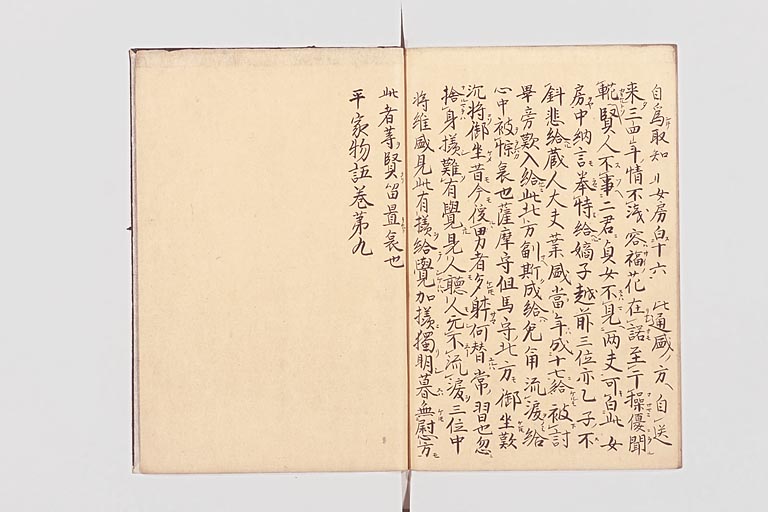 自為取知リ女房自十六此通盛ノ方ヘ自送
来三四年情不浅容福花在諾至テ操優聞
賢人不事二君貞女不見両夫可白此女
房中納言奉持給嫡子越前三位亦乙子不
斜悲給蔵人大夫業盛當年成十七給被討
畢旁歎入給此北方 斯成給 流涙給
心中被惊哀也薩摩守但馬守北方御坐歎
沉将御坐昔今侫男者多 何替常習也忽
捨身様難有覺見人聽人无不流涙三位中
将維盛見此有様給覺加様獨明暮無慰方
此者 賢留置哀也
平家物語巻第九